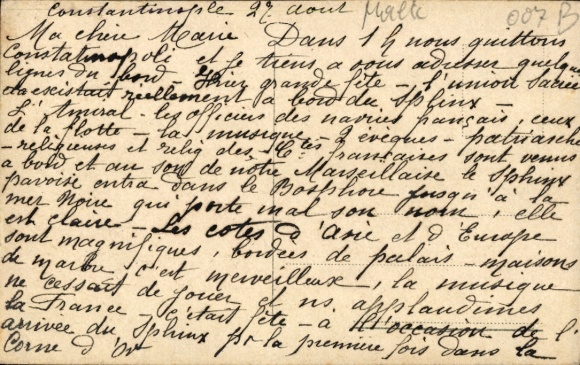 Constantinople 27 aout Malte 007 B
Ma chere Marie Dans 1 h nous quittons
Constatinopoli et je tiens a vous adresser quelques
lignes du bord - Hier grande fête - l'union sacrée
existait réellement a bord du Sphinx -
L'Amiral - les officiers des navires français, ceux
de la flotte - la musique - 2 évèques - patriarche
- religieuses et relig des Ctés françaises sont venus
a bord et au son de nôtre Marseillaise le Sphinx
pavoisé entra dans le Bosphore jusqu'à la
mer Noire qui porte mal son nom, elle
est claire - Les cotes d'Asie et d'Europe
sont magnifiques, bordées de palais - maisons
de marbre c'est merveilleux, la musique
ne cessait de jouer et ns applaudimes
la France - C'était fête - à l'occasion de l'
arrivée du Sphinx pr la première fois dans la
Corne d'Or